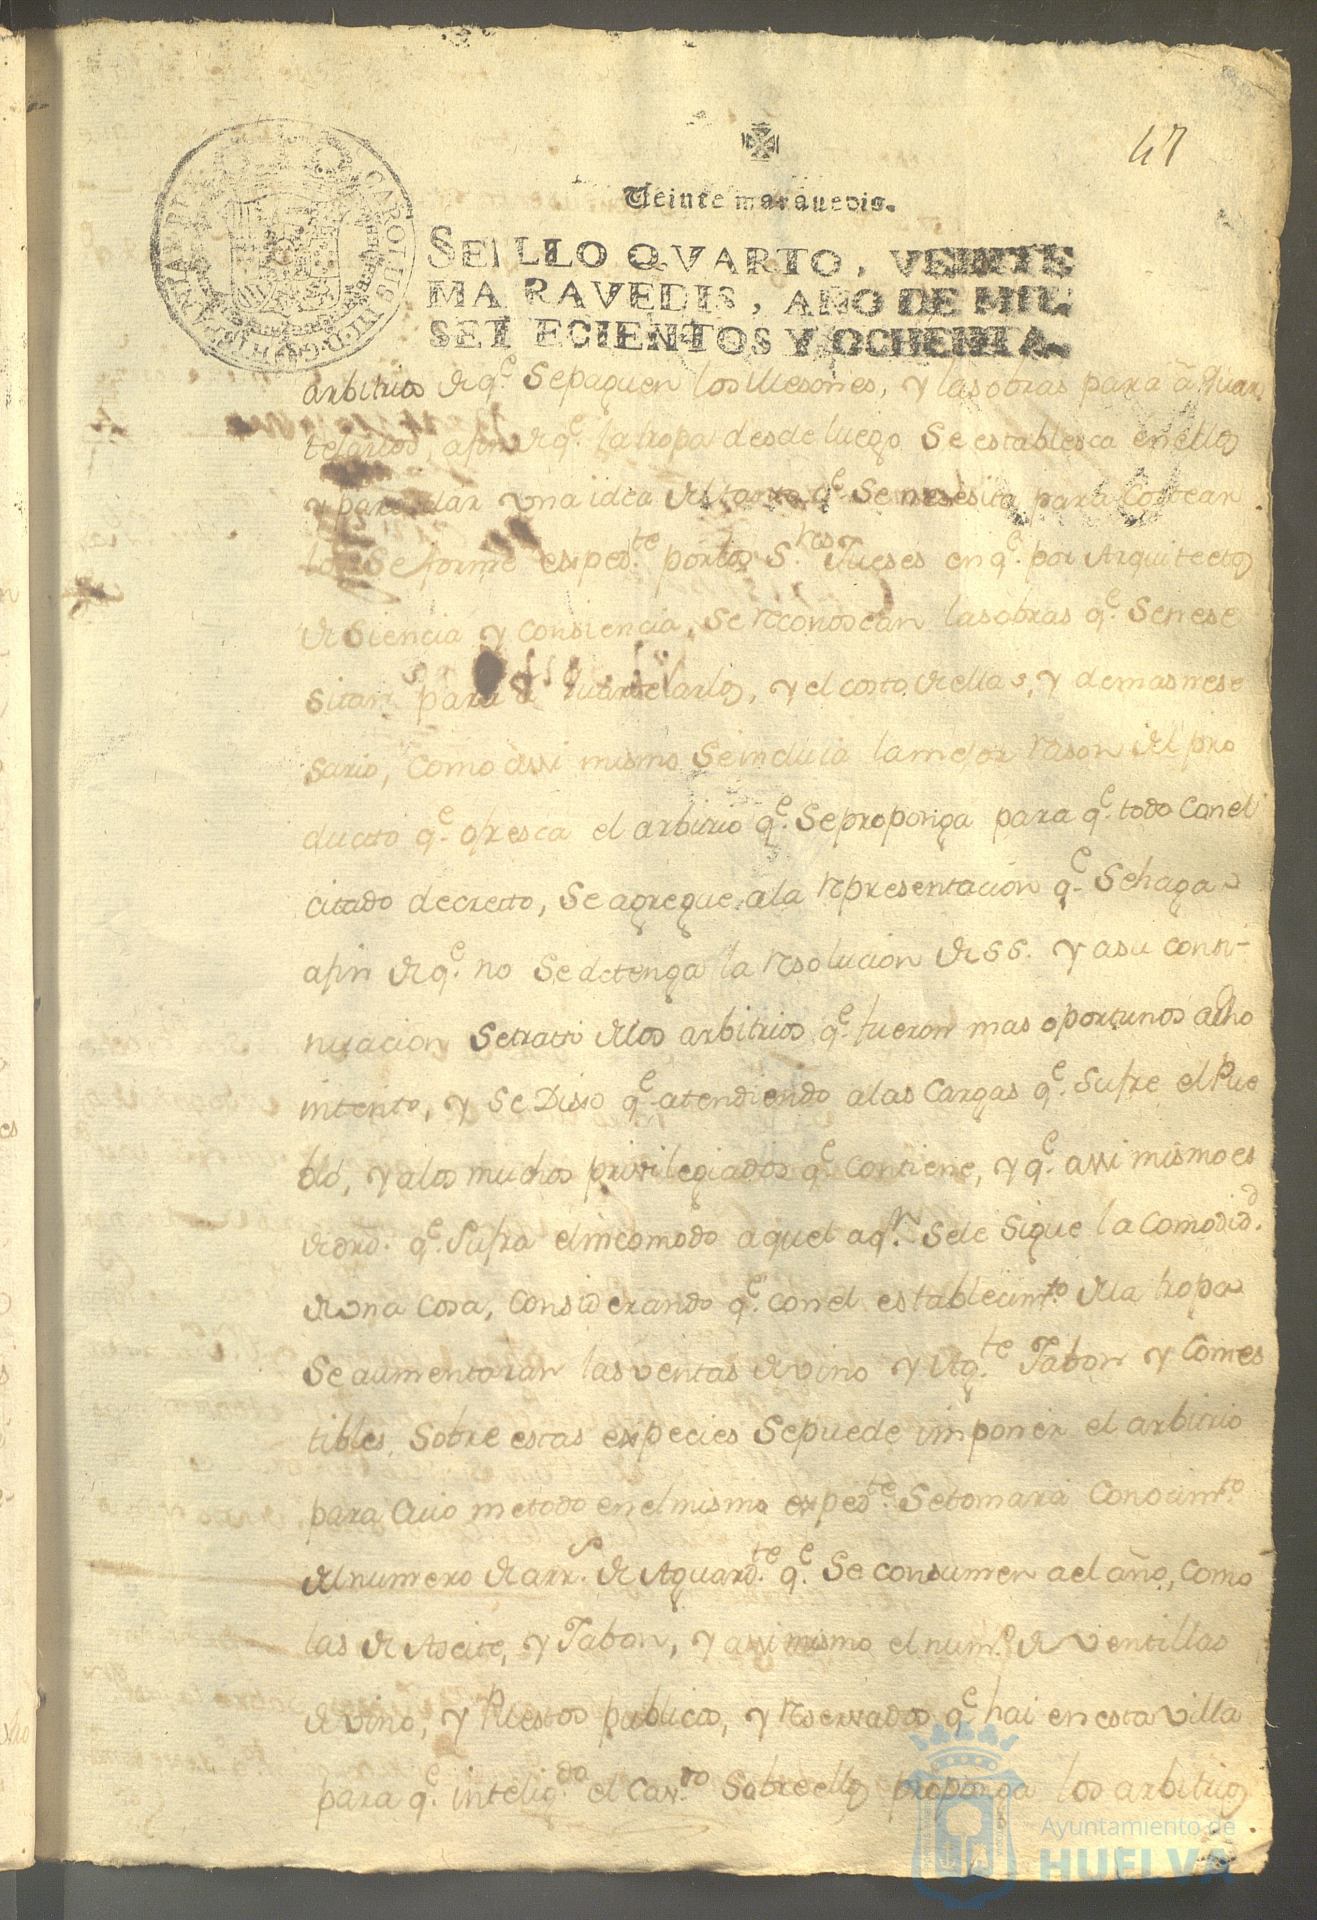 47
Veinte marauedis.
SELLO QVARTO, VEINTE
MARAVEDIS, AÑO DE MIL
SETECIENTOS Y OCHENTA.
CAROLUS III D G HISPANIAR
arbitrios de q.e Se paguen los Mesones, y las obras para aquar
telarlos, afin de q.e la tropa desde luego Se establesca en ellos
y para dar vna idea del tanto q.e Se nesesita para Costear
los Se forme exped.te por los S.res Jueses en q.e por Arquitectos
de Siencia y Consiencia, Se reconoscan las obras q.e Se nese
sitan para aquartelarlos, y el costo de ellas, y demas nese
sario, Como assi mismo Se induia la mejor rason del pro
ducto q.e ofresca el arbitrio q.e Se proponga para q.e todo Con el
citado decreto, Se agregue a la representacion q.e Se haga
afin de q.e no Se detenga la resolucion de SS. y a su conti-
nuacion Se trattó de los arbitrios q.e fueron mas oportunos a dho
intento, y Se Dixo q.e atendiendo a las Cargas q.e Sufre el Pue
blo, y a los muchos privilegiados q.e Contiene, y q.e assi mismo es
de drd. q.e Sufra el incomodo aquel a q.n Se le Sigue la Comodid.d
de vna Cosa, Considerando q.e con el establecim.to de la tropa
Se aumentaran las ventas de vino y Ag.te Jabon y Comes
tibles, Sobre estas expecies Se puede imponer el arbitrio
para Cuio metodo en el mismo exped.te Se tomara Conocim.to
del numero de arr.s de Aguard.te q.e Se consumen a el año, Como
las de Aseite, y Jabon, y assi mismo el num.o de ventillas
de vino, y Puestos publicos, y reservados q.e hai en esta villa
para q.e intelig.do el Cav.do Sobre ellos proponga los arbitrios
Ayuntamiento de
HUELVA